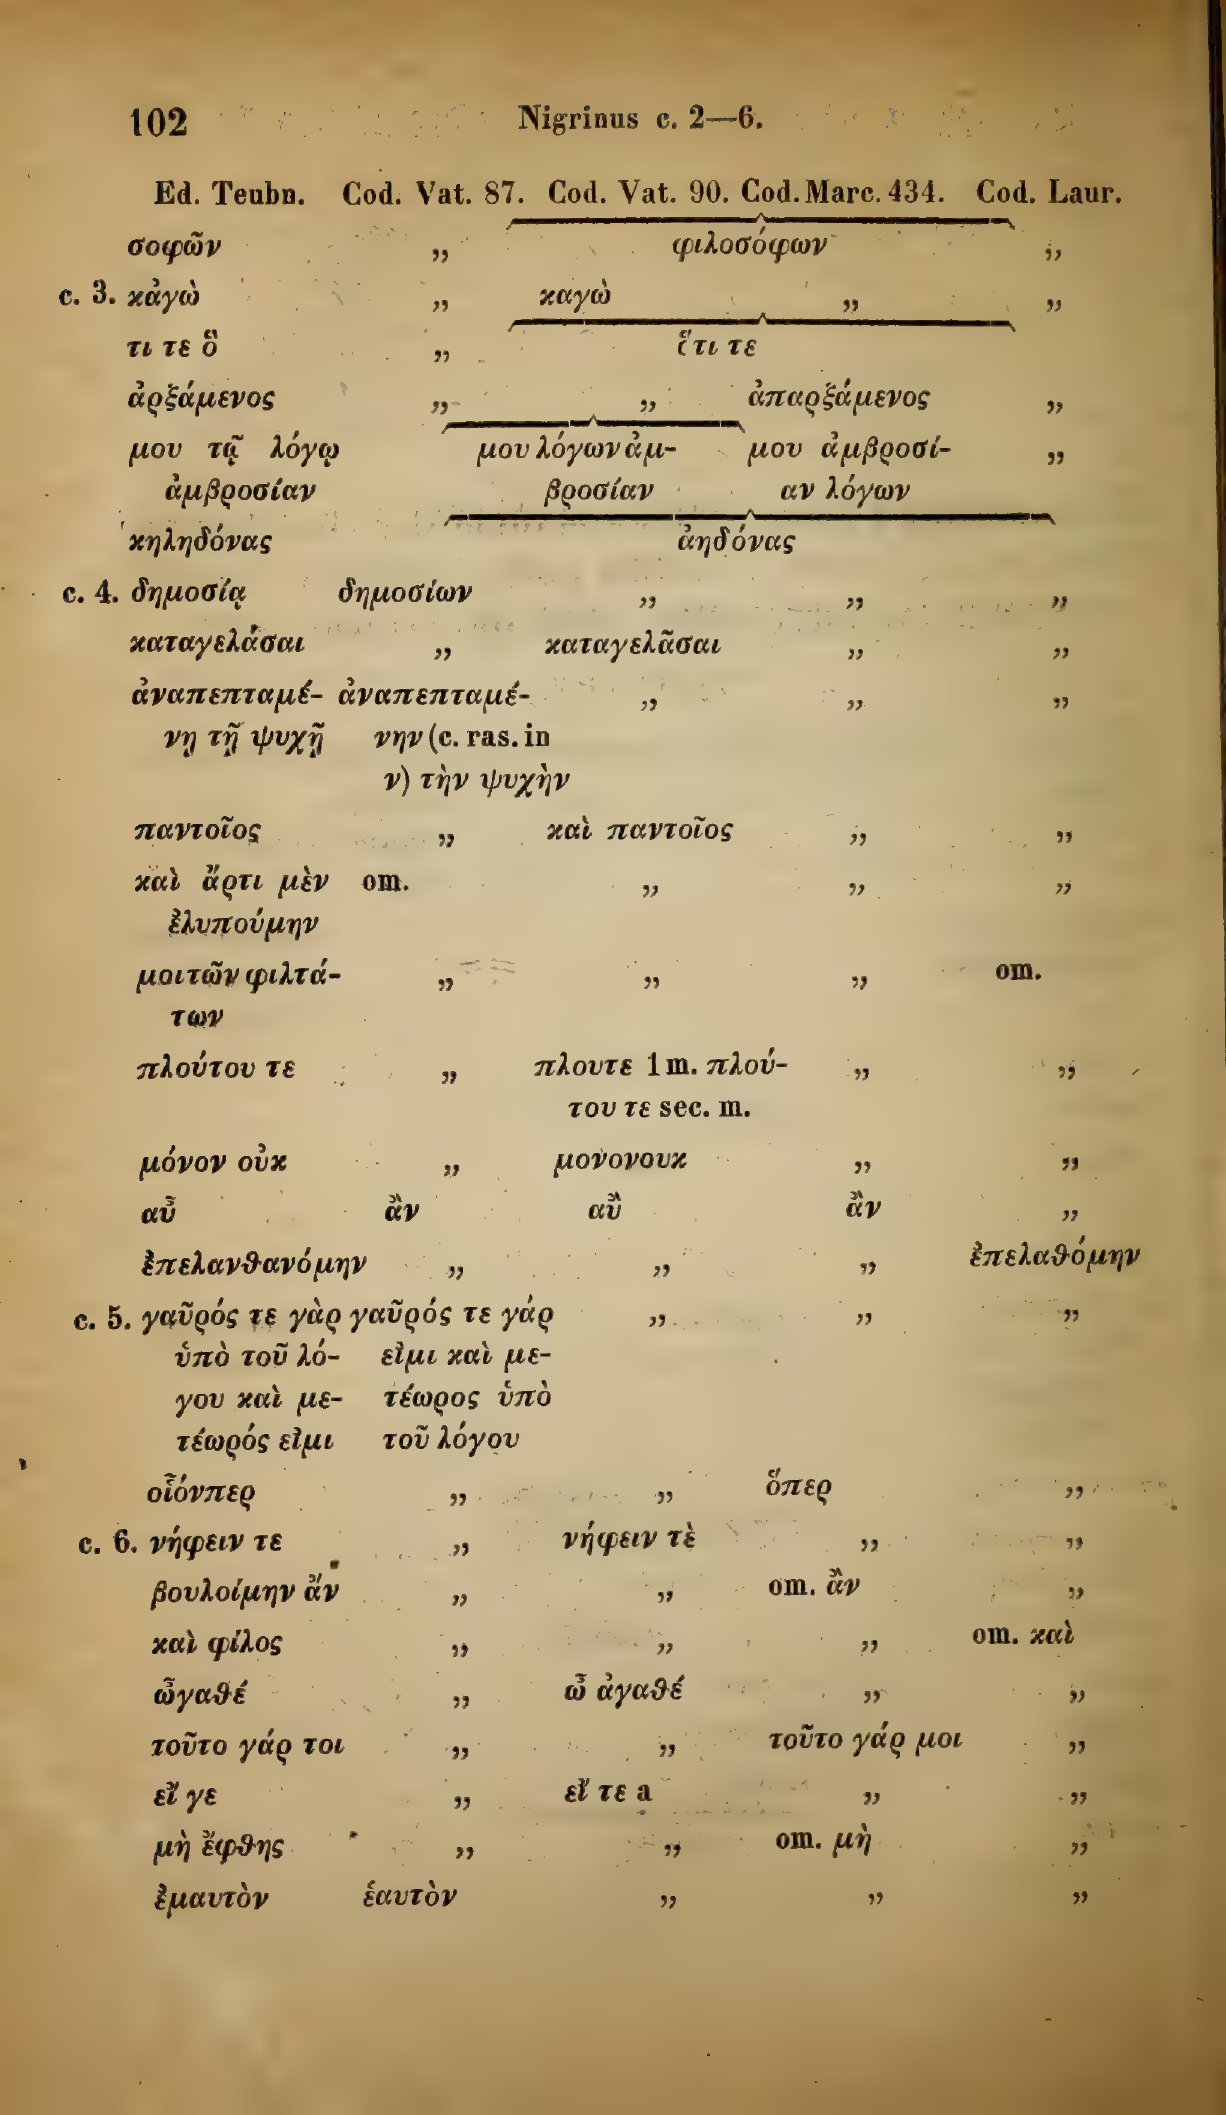 102 Nigrinus c. 2—6.
Ed. Teubn. Cod. Vat. 87. Cod. Vat. 90. Cod. Marc. 434. Cod. Laur.
σοφῶν „ φιλοσόφων „
c. 3. κἀγὼ „ καγὼ „ „
τι τε ὃ „ ὅτι τε
ἀρξάμενος „ „ ἀπαρξάμενος „
μου τῷ λόγῳ μου λόγων ἀμ- μου ἀμβροσί- „
ἀμβροσίαν βροσίαν αν λόγων
κηληδόνας ἀηδόνας
c. 4. δημοσίᾳ δημοσίων „ „ „
καταγελάσαι „ καταγελᾶσαι „ „
ἀναπεπταμέ- ἀναπεπταμέ- „ „ „
νῃ τῇ ψυχῇ νην (c. ras. in
ν) τὴν ψυχὴν
παντοῖος „ καὶ παντοῖος „ „
καὶ ἄρτι μὲν om. „ „ „
ἐλυπούμην
μοι τῶν φιλτά- „ „ „ om.
των
πλούτου τε „ πλουτε 1 m. πλού- „ „
του τε sec. m.
μόνον οὐκ „ μονονουκ „ „
αὖ ἂν αὒ ἂν „
ἐπελανθανόμην „ „ „ ἐπελαθόμην
c. 5. γαῦρός τε γὰρ γαῦρός τε γάρ „ „ „
ὑπὸ τοῦ λό- εἰμι καὶ με-
γου καὶ με- τέωρος ὑπὸ
τέωρός εἰμι τοῦ λόγου
οἷόνπερ „ „ ὅπερ „
c. 6. νήφειν τε „ νήφειν τὲ „ „
βουλοίμην ἄν „ „ om. ἂν „
καὶ φίλος „ „ „ om. καὶ
ὦγαθέ „ ὦ ἀγαθέ „ „
τοῦτο γάρ τοι „ „ τοῦτο γάρ μοι „
εἴ γε „ εἴ τε a „ „
μὴ ἔφθης „ „ om. μὴ „
ἐμαυτὸν ἑαυτὸν „ „ „